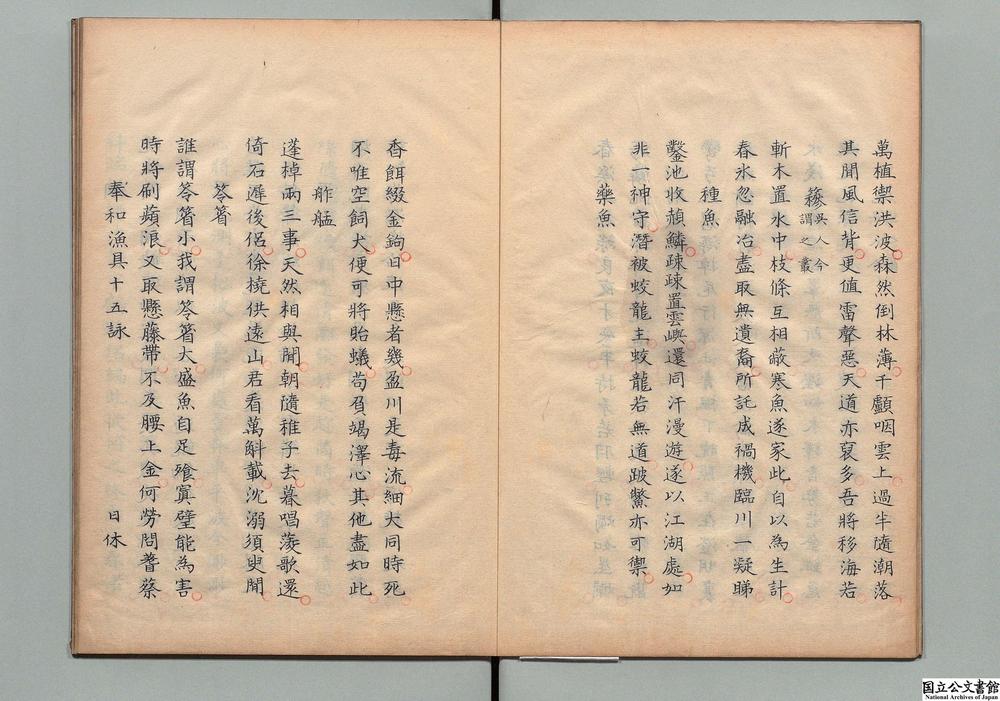 萬植禦洪波森然倒林薄千顱咽雲上過半隨潮落
其間風信背更值雷聲惡天道亦裒多吾將移海若
䈊吳人今謂之叢
斬木置水中枝條互相蔽寒魚遂家此自以為生計
春水忽融冶盡取無遺裔所託成禍機臨川一凝睇
種魚
鑿池收赬鱗疎疎置雲嶼還同汗漫遊遂以江湖處如
非神守潛被蛟龍主蛟龍若無道跛鱉亦可禦
藥魚
香餌綴金鉤日中懸者幾盈川是毒流細大同時死
不唯空飼犬便可將貽蟻苟負竭澤心其他盡如此
舴艋
蓬棹兩三事天然相與閒朝隨稚子去暮唱菱歌還
倚石遲後侶徐橈供遠山君看萬斛載沈溺須臾間
笭箵
誰謂笭箵小我謂笭箵大盛魚自足飱寘璧能為害
時將刷蘋浪又取懸藤帶不及腰上金何勞問蓍蔡
奉和漁具十五詠 日休
国立公文書館
National Archives of Japan